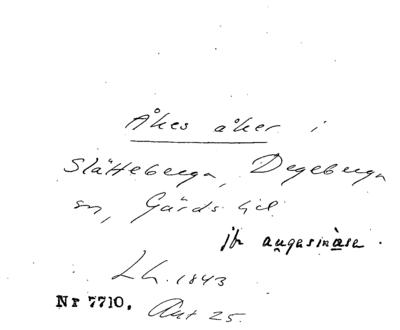 Åkes åker i
Slätteberga, Degeberga
sn, Gärds hd.
jfr
Lh. 1843
Nr 7710. Ant 25.